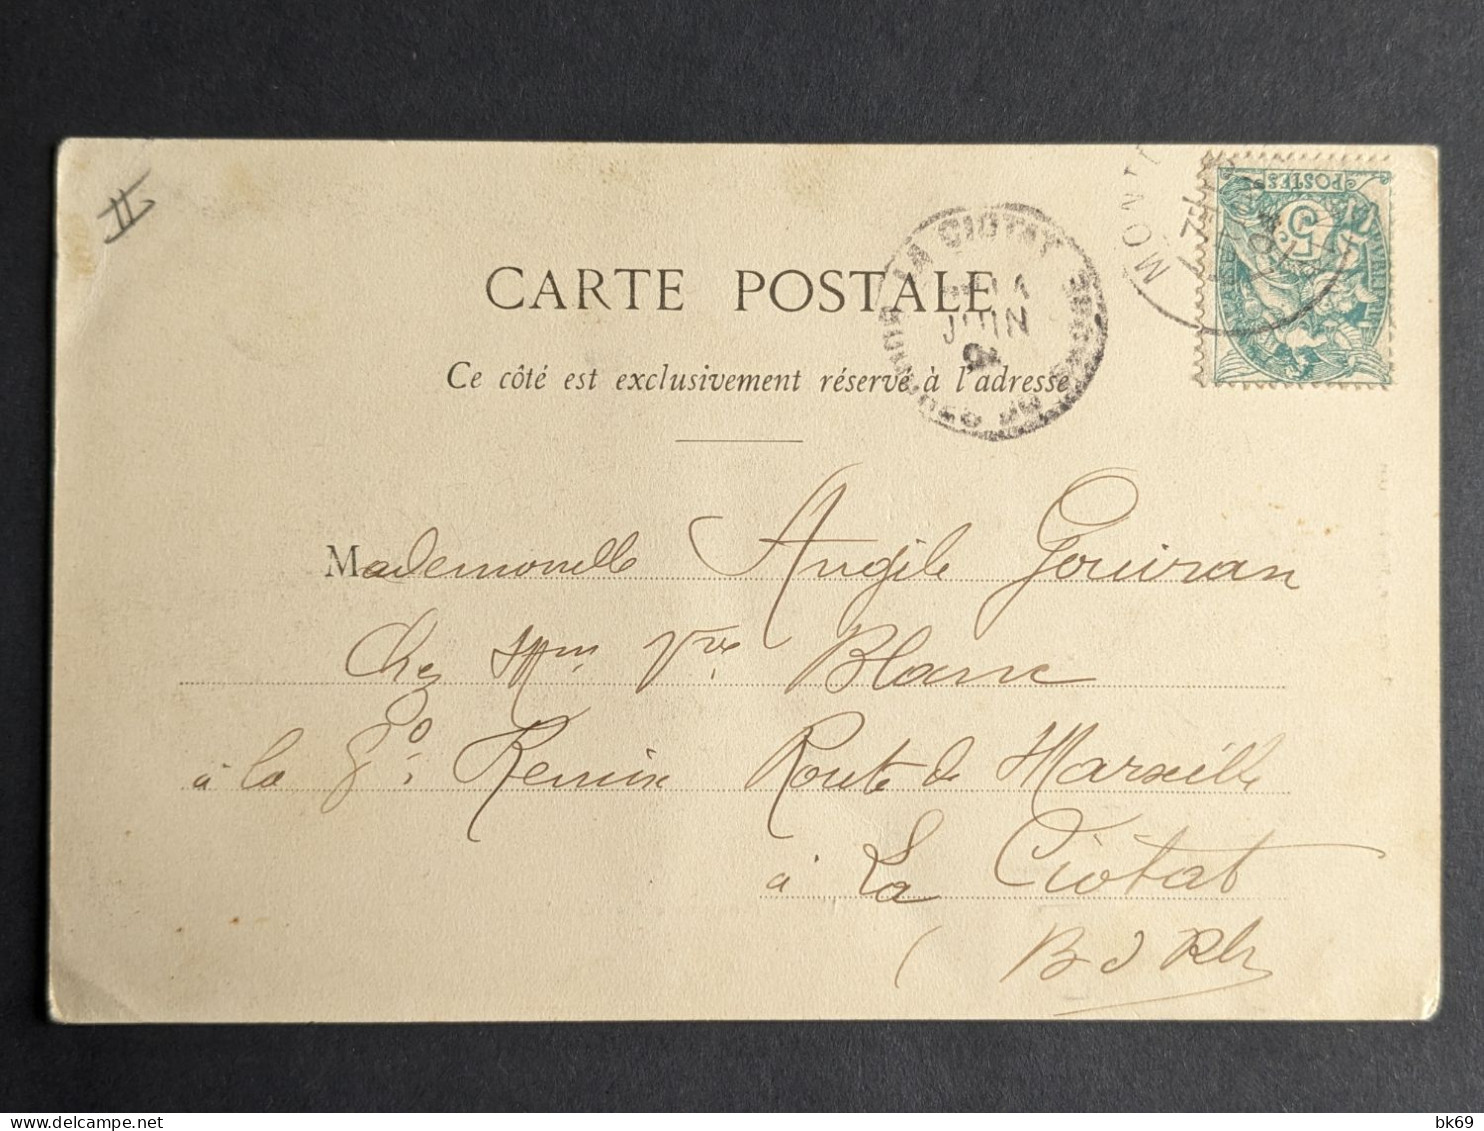 II
CARTE POSTALE
Ce côté est exclusivement réservé à l'adresse
LA CIOTAT
JUIN
BOUCHES DU RHONE
MON
POSTES
5
Mademoiselle Angèle Gouiran
Chez Mme Vve Blanc
à la Gde Remise Route de Marseille
à La Ciotat
(B d Rh
bk69